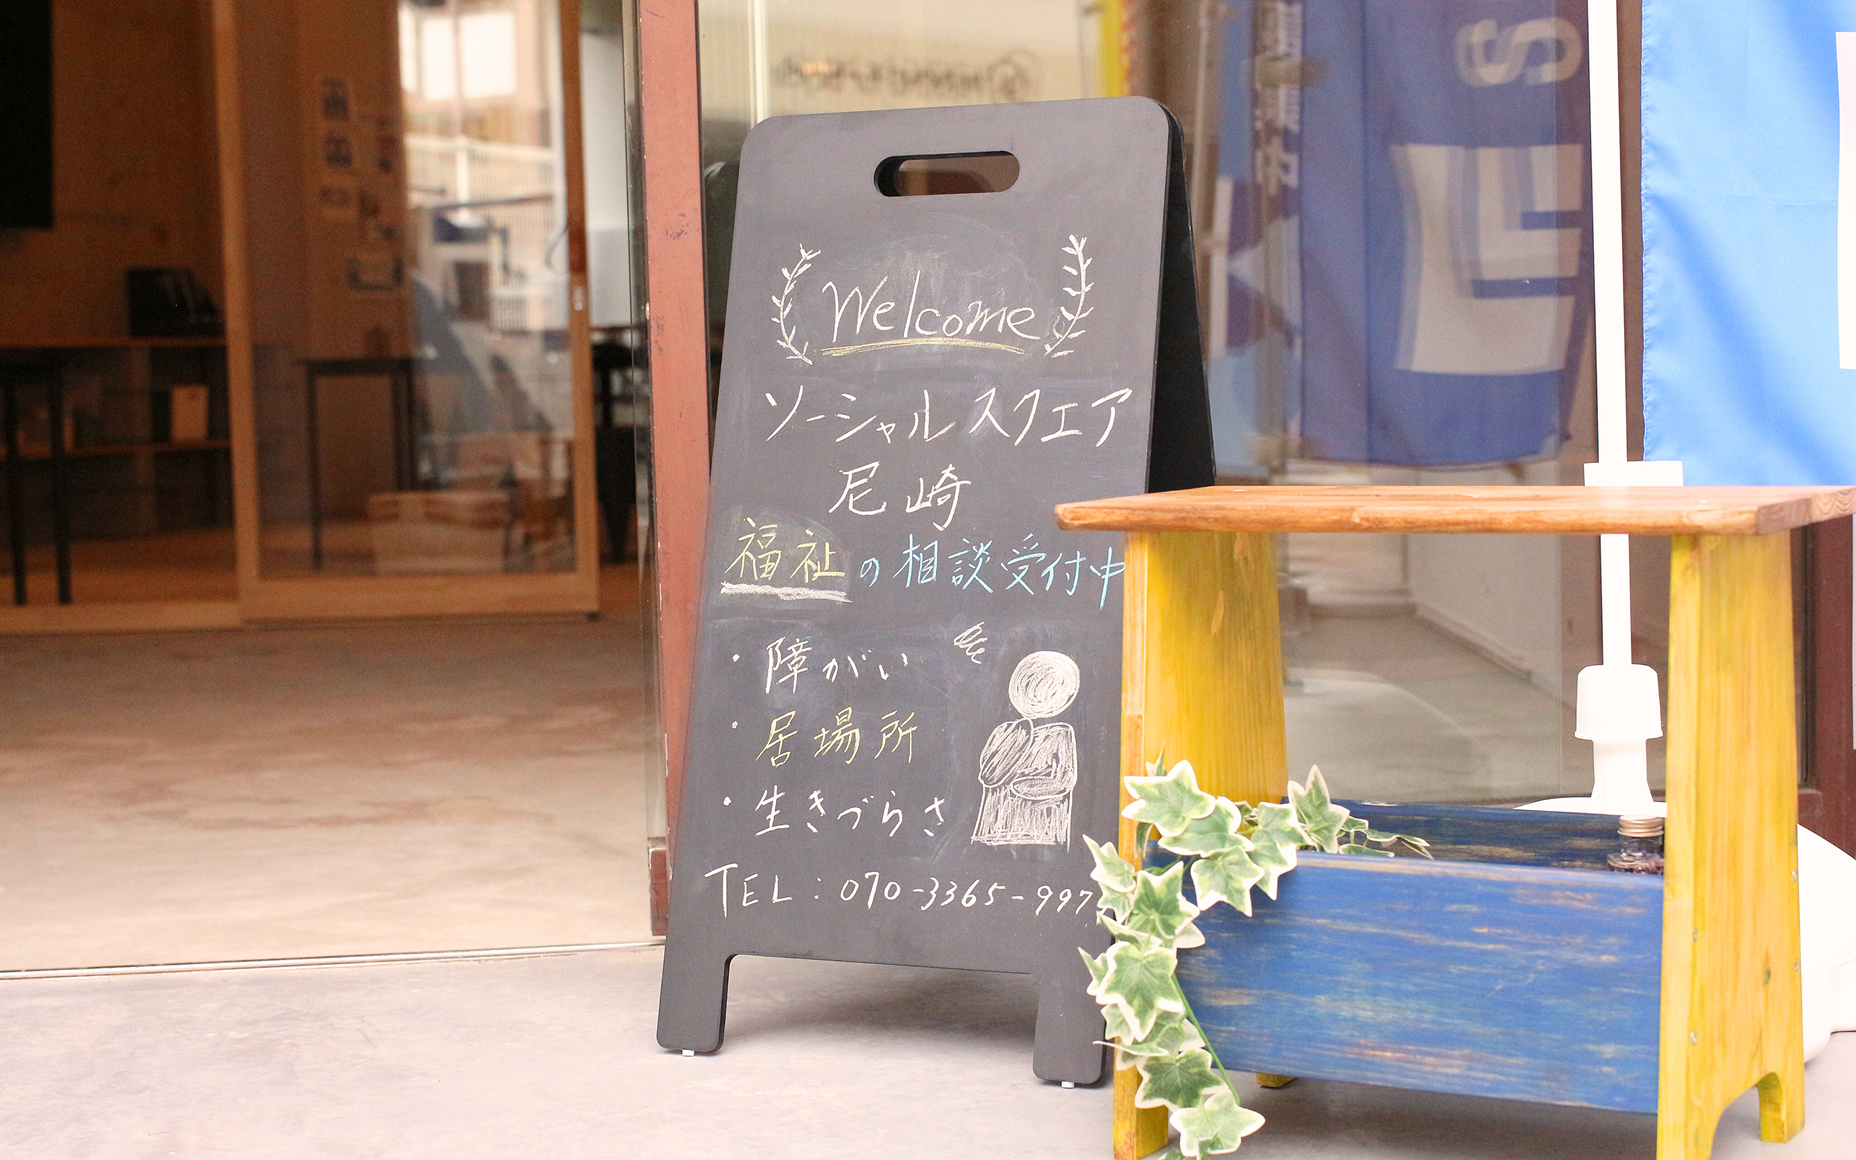 Welcome
ソーシャルスクエア
尼崎
福祉の相談受付中
・障がい
・居場所
・生きづらさ
TEL:070-3365-997
S